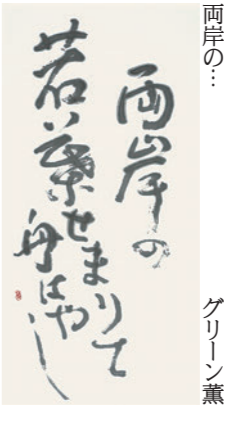 両岸の… グリーン薫
両岸の
若葉せまりて
舟はやし